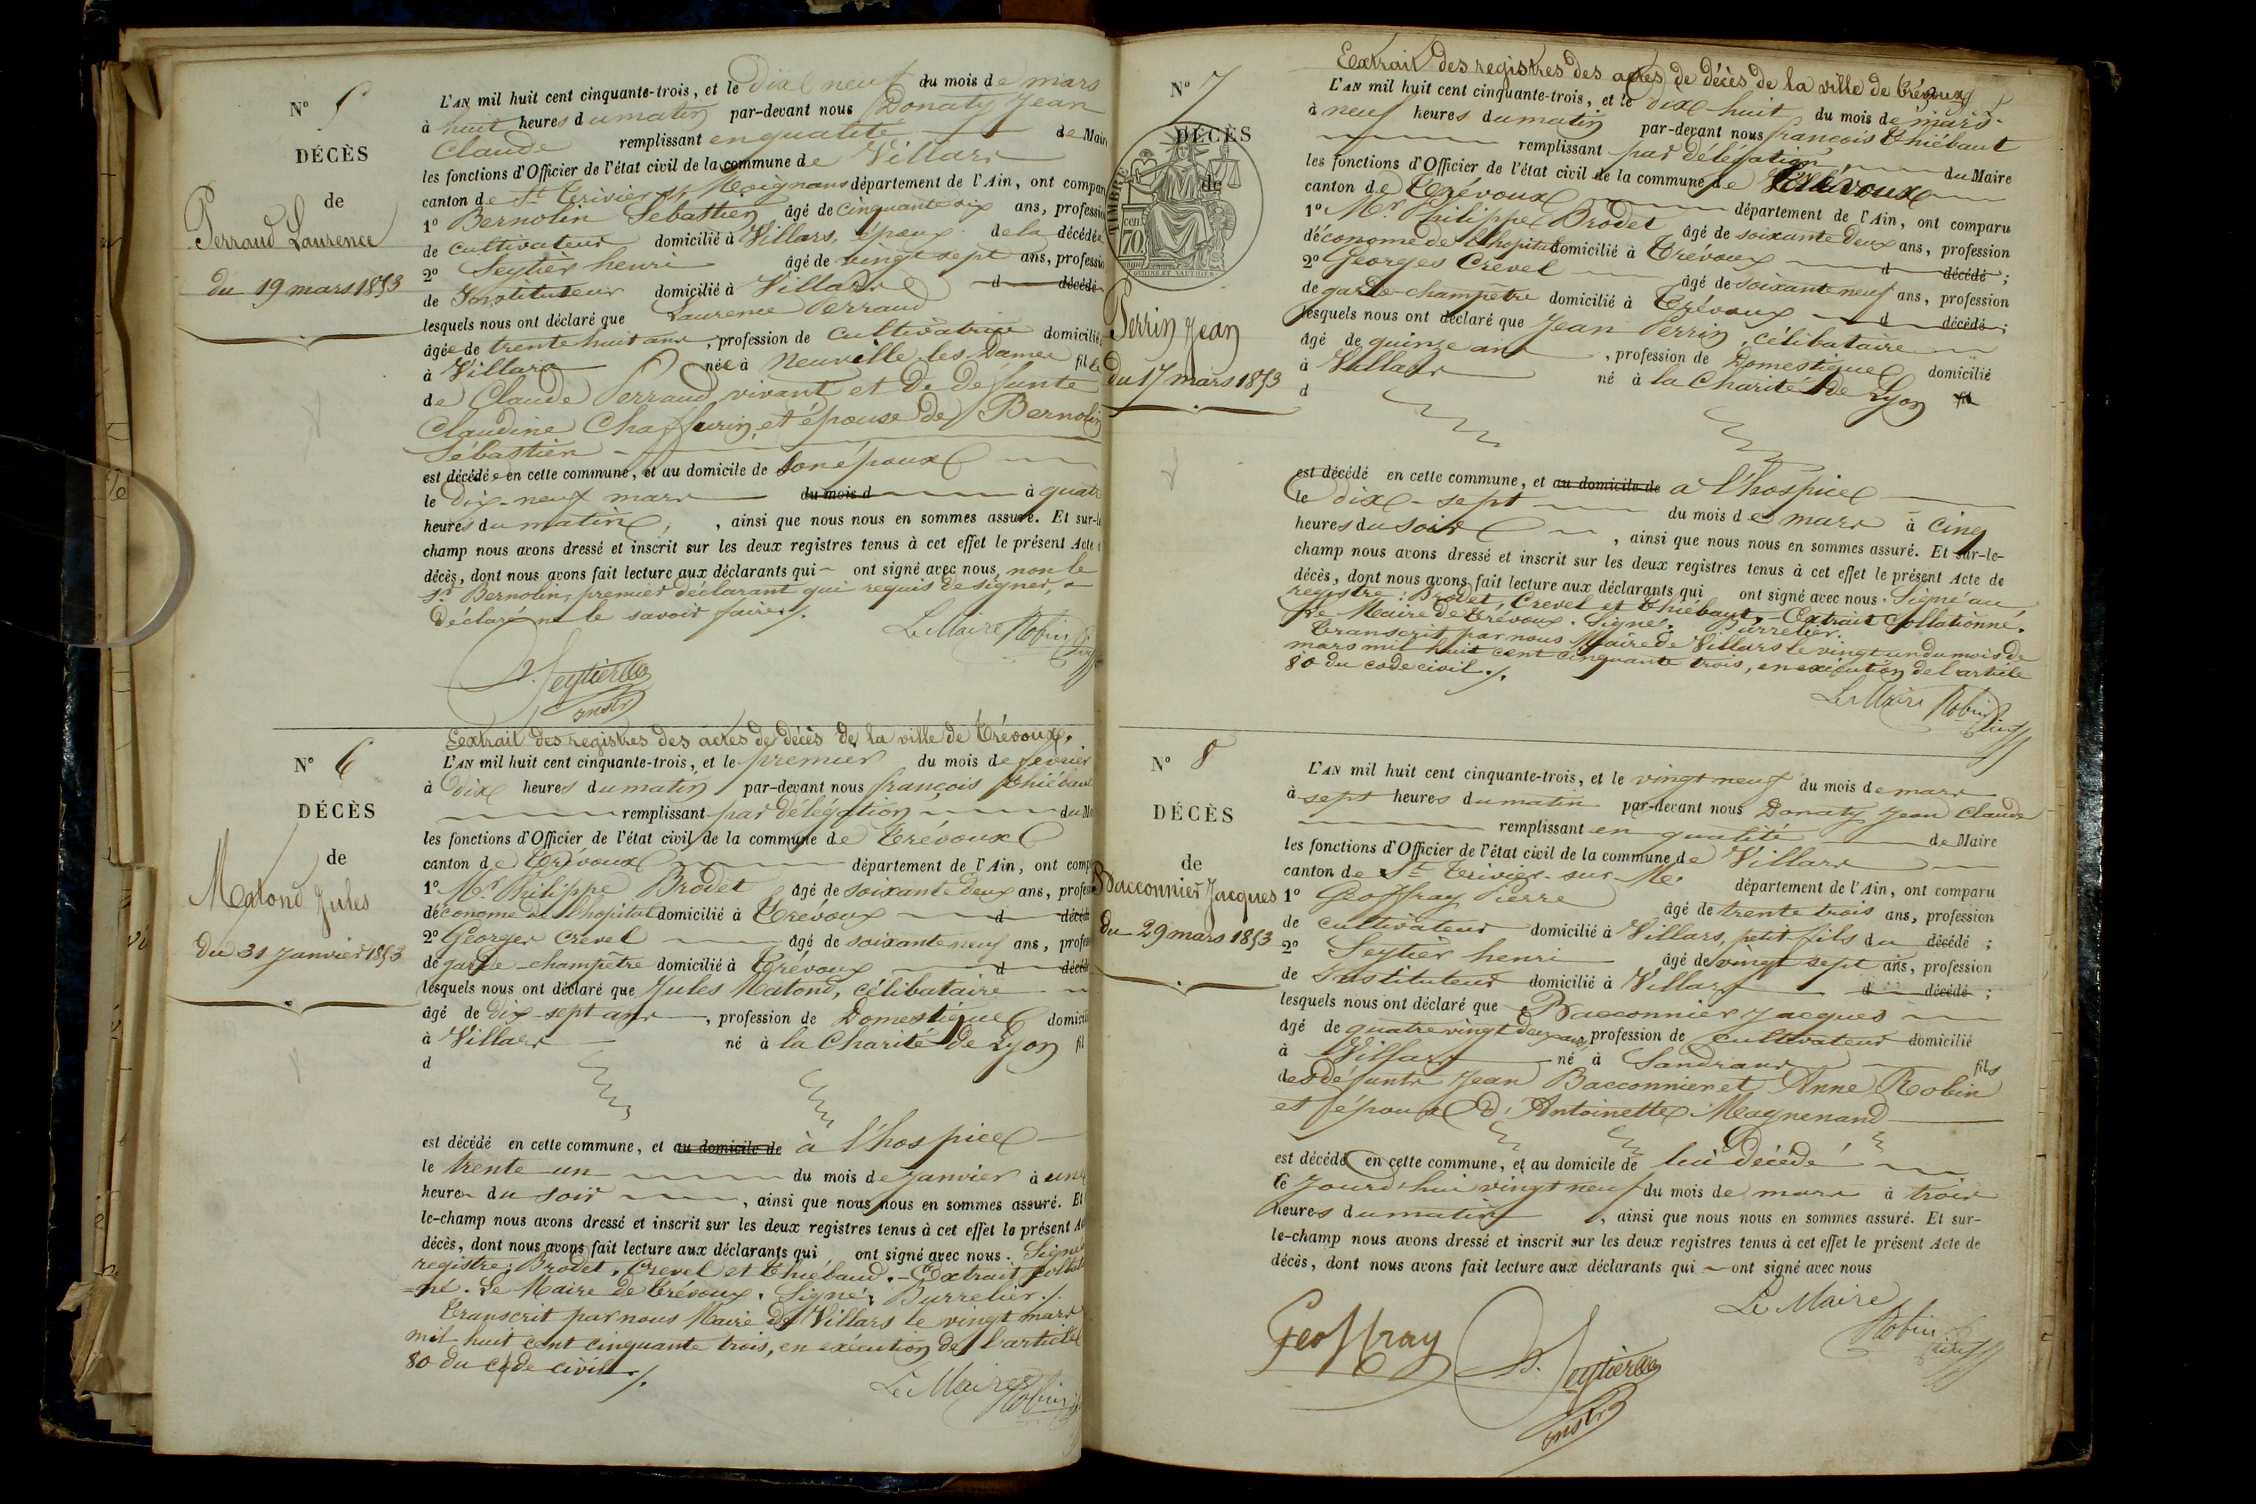 N° 5
DÉCÈS
de
Perraud Laurence
du 19 mars 1853
L'AN mil huit cent cinquante-trois, et le dix neuf du mois de mars
à huit heures du matin par-devant nous Donaty Jean
Claude remplissant en qualité de Maire
les fonctions d'Officier de l'état civil de la commune de Villars
canton de St Trivier s/ Moignans département de l'Ain, ont compar
1° Bernolin Sébastien âgé de cinquante six ans, profession
de cultivateur domicilié à Villars, époux de la décédée
2° Seytier henri âgé de vingt sept ans, profession
de Instituteur domicilié à Villars d décédé
lesquels nous ont déclaré que Laurence Perraud
âgée de trente huit ans, profession de cultivatrice domicilié
à Villars née à Neuville les Dames fille
de Claude Perraud vivant et de défunte
Claudine Chaffurin, et épouse de Bernolin
Sébastien
est décédée en cette commune, et au domicile de son époux
le dix-neuf mars du mois d à quatre
heures du matin, , ainsi que nous nous en sommes assuré. Et sur-le
champ nous avons dressé et inscrit sur les deux registres tenus à cet effet le présent Acte
décès, dont nous avons fait lecture aux déclarants qui ont signé avec nous, non le
sr Bernolin, premier déclarant qui requis de signer, a
déclaré ne le savoir faire /.
Le Maire Robin
h. Seytier
instr
N° 6
DÉCÈS
de
Matond Jules
du 31 janvier 1853
Extrait des registres des actes de décès de la ville de Trévoux.
L'AN mil huit cent cinquante-trois, et le premier du mois de février
à dix heures du matin par-devant nous françois Thiébaut
remplissant par délégation du Ma
les fonctions d'Officier de l'état civil de la commune de Trévoux
canton de Trévoux département de l'Ain, ont comp
1° Mr Philippe Brodet âgé de soixante deux ans, profes
d'économe de l'hopital domicilié à Trévoux d décédé
2° Georges Crevel âgé de soixante neuf ans, profes
de garde-champêtre domicilié à Trévoux d décédé
lesquels nous ont déclaré que Jules Matond, célibataire
âgé de dix-sept ans, profession de Domestique domicilié
à Villars né à la Charité de Lyon fil
d
est décédé en cette commune, et au domicile de à l'hospice
le trente-un du mois de janvier à une
heure du soir , ainsi que nous nous en sommes assuré. Et
le-champ nous avons dressé et inscrit sur les deux registres tenus à cet effet le présent Ac
décès, dont nous avons fait lecture aux déclarants qui ont signé avec nous. Signé
registre: Brodet, Crevel et Thiébaud. - Extrait collatio
-né. Le Maire de Trévoux. Signé: Burrelier./.
Transcrit par nous Maire de Villars le vingt mars
mil huit cent cinquante trois, en exécution de l'article
80 du code civil /.
Le Maire Robin
N° 7
DÉCÈS
de
TIMBRE
70
Perrin Jean
du 17 mars 1853
Extrait des registres des actes de décès de la ville de Trévoux
L'AN mil huit cent cinquante-trois, et le dix-huit du mois de mars
à neuf heures du matin par-devant nous françois Thiébaut
remplissant par délégation du Maire
les fonctions d'Officier de l'état civil de la commune de Trévoux
canton de Trévoux département de l'Ain, ont comparu
1° Mr Philippe Brodet âgé de soixante deux ans, profession
d'économe de l'hopital domicilié à Trévoux d décédé ;
2° Georges Crevel âgé de soixante neuf ans, profession
de garde-champêtre domicilié à Trévoux d décédé ;
lesquels nous ont déclaré que Jean Perrin, célibataire
âgé de quinze ans , profession de Domestique domicilié
à Villars né à la Charité de Lyon fil
d
est décédé en cette commune, et au domicile de à l'hospice
le dix-sept du mois de mars à cinq
heures du soir , ainsi que nous nous en sommes assuré. Et sur-le-
champ nous avons dressé et inscrit sur les deux registres tenus à cet effet le présent Acte de
décès, dont nous avons fait lecture aux déclarants qui ont signé avec nous. Signé au
registre: Brodet, Crevel et Thiébaut. - Extrait collationné.
Le Maire de Trévoux. Signé: Burrelier.
Transcrit par nous Maire de Villars le vingt un du mois de
mars mil huit cent cinquante trois, en exécution de l'article
80 du code civil /.
Le Maire Robin
N° 8
DÉCÈS
de
Bacconnier Jacques
du 29 mars 1853
L'AN mil huit cent cinquante-trois, et le vingt neuf du mois de mars
à sept heures du matin par-devant nous Donaty Jean Claude
remplissant en qualité de Maire
les fonctions d'Officier de l'état civil de la commune de Villars
canton de St Trivier-sur-Mo. département de l'Ain, ont comparu
1° Geoffray Pierre âgé de trente trois ans, profession
de cultivateur domicilié à Villars, petit-fils du décédé ;
2° Seytier henri âgé de vingt sept ans, profession
de Instituteur domicilié à Villars d décédé ;
lesquels nous ont déclaré que Bacconnier Jacques
âgé de quatre vingt deux ans, profession de cultivateur domicilié
à Villars né à Sandrans fils
des défunts Jean Bacconnier et Anne Robin
et époux d'Antoinette Magnenand
est décédé en cette commune, et au domicile de lui décédé
le jourd'hui vingt neuf du mois de mars à trois
heures du matin , ainsi que nous nous en sommes assuré. Et sur-
le-champ nous avons dressé et inscrit sur les deux registres tenus à cet effet le présent Acte de
décès, dont nous avons fait lecture aux déclarants qui ont signé avec nous
Le Maire
Robin
Geoffray h. Seytier
instr